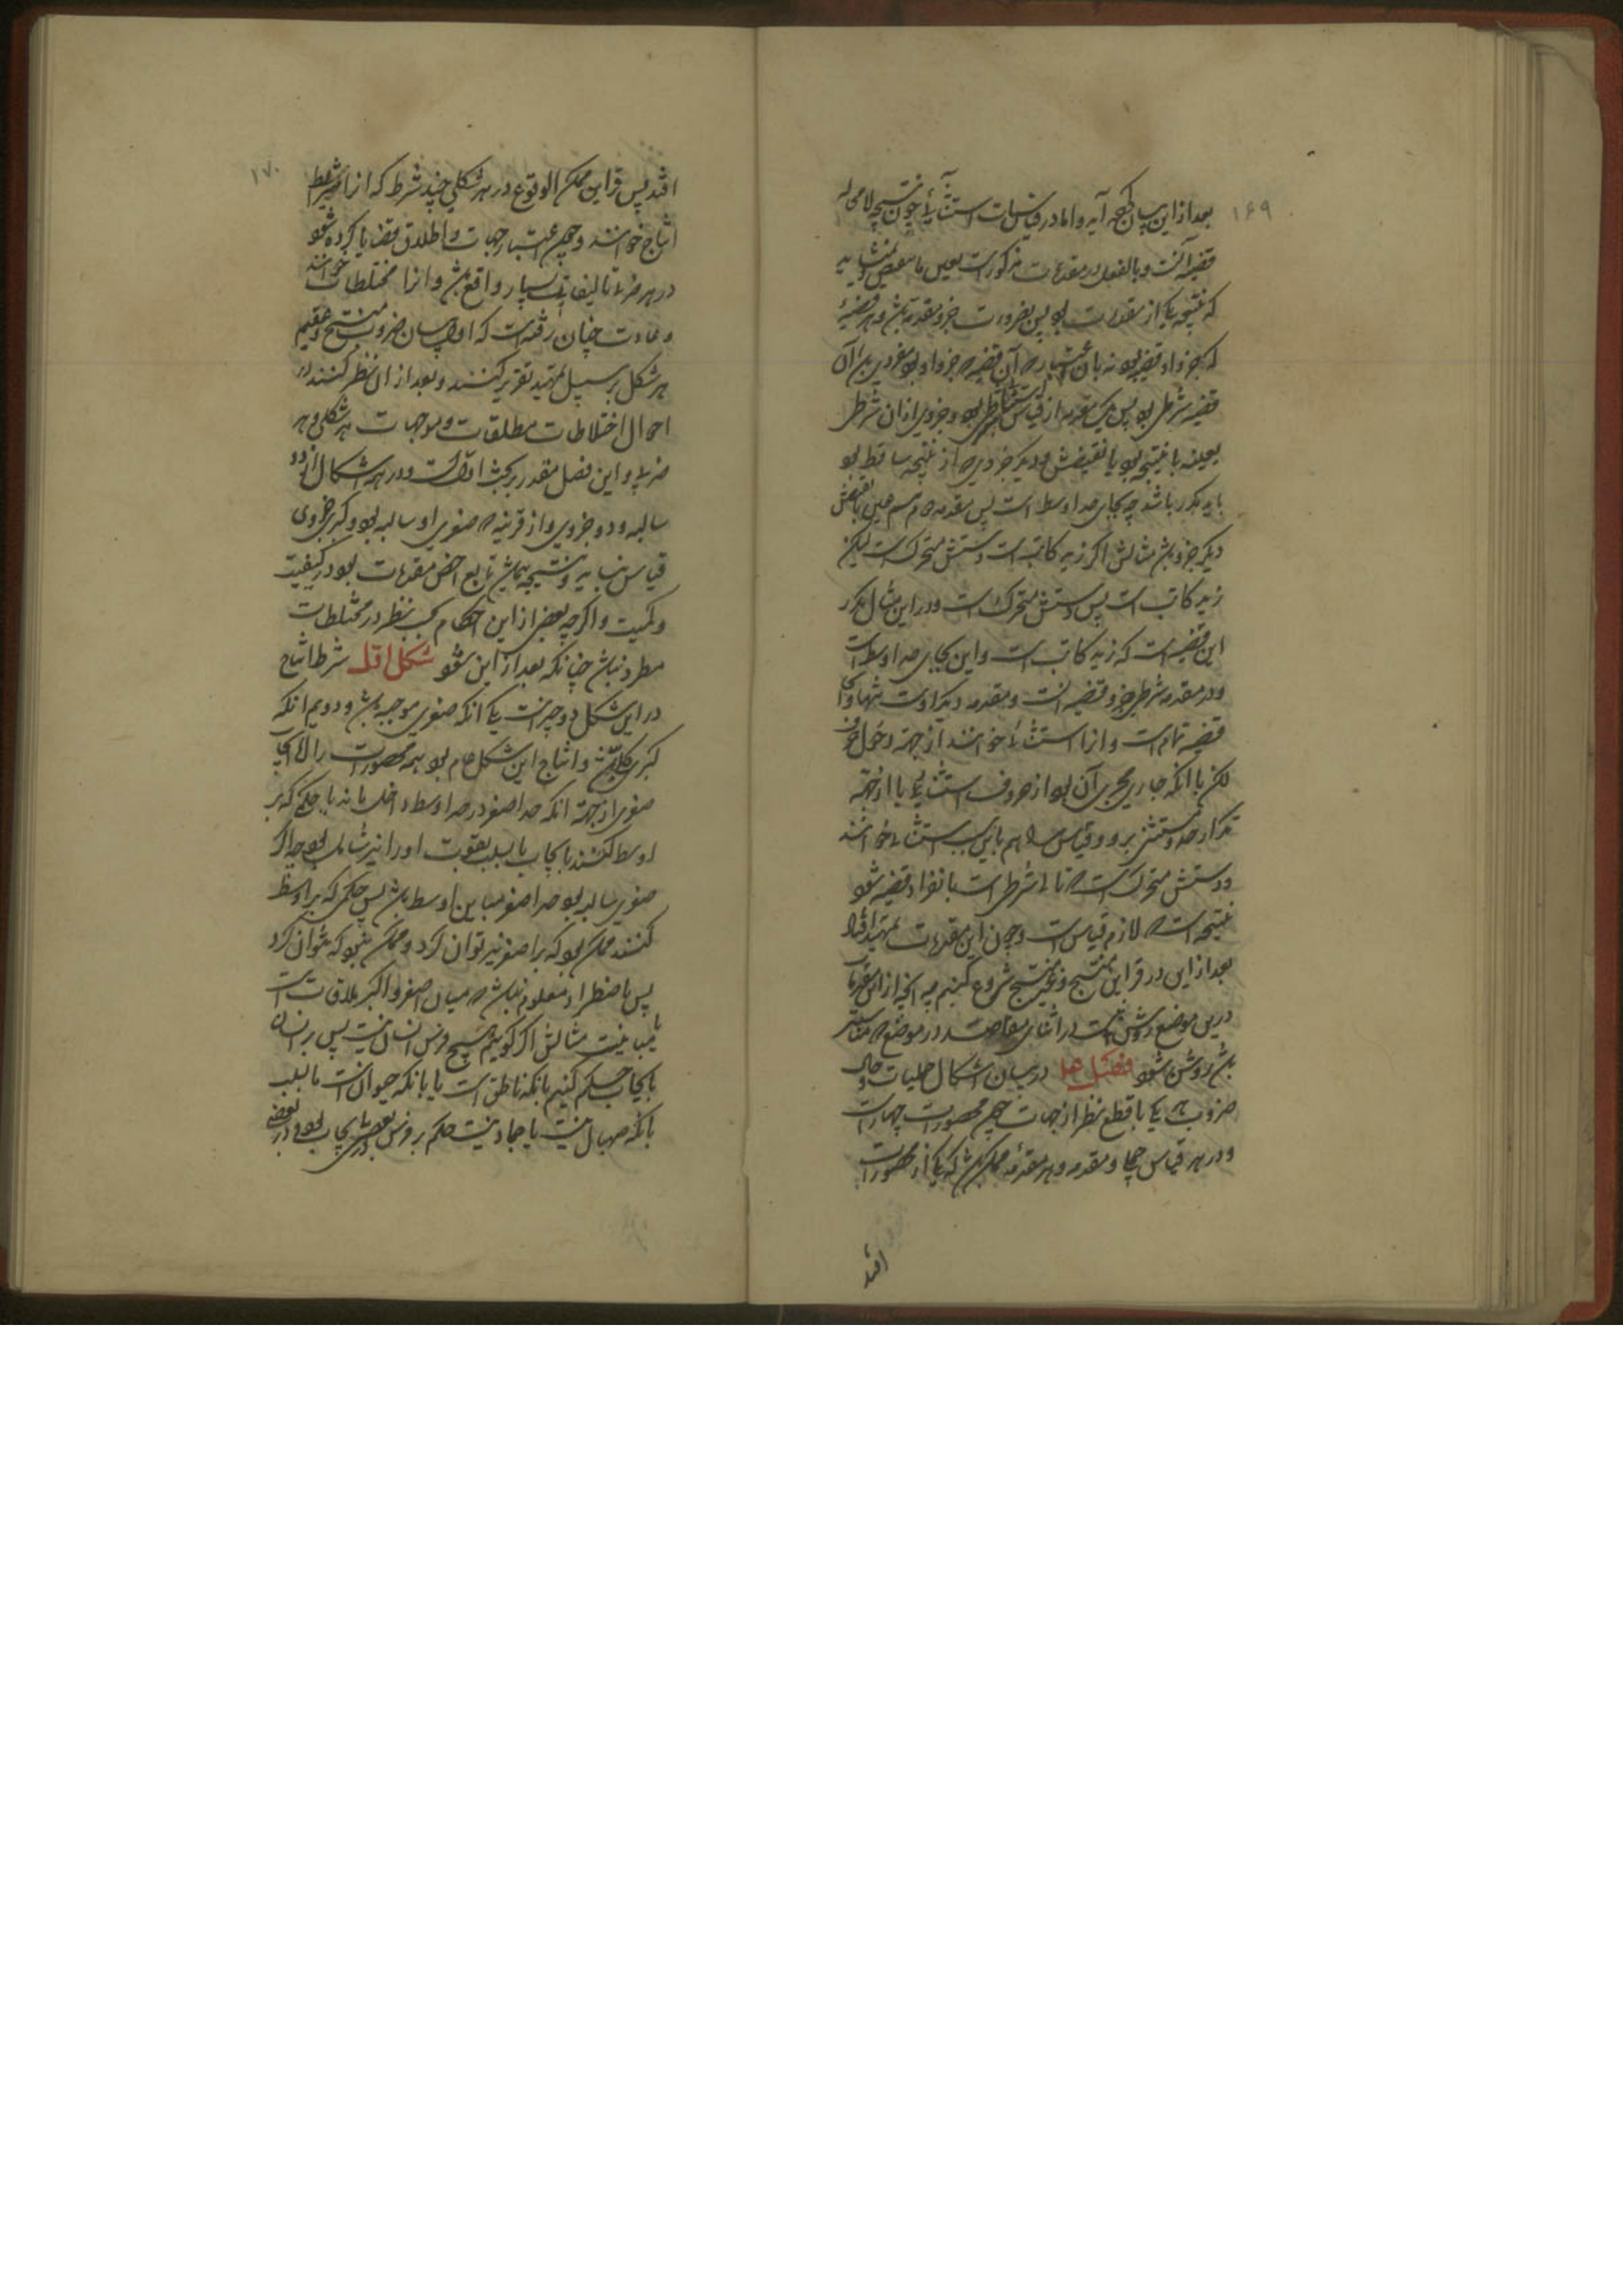 ۱۶۹
بعد از این بیان کرده آید و اما در قیاسات استثنائی چون نتیجه لامحاله
قضیه است و بالفعل در مقدمات مذکور است بعین یا بنقیض و نشاید
که نتیجه یکی از مقدمات بود پس بضرورت جزو مقدمه باشد و هر قضیهٔ
که جزو او قضیه بود نه بان اعتبار که آن قضیه جزو او بود مفردی باشد آن
قضیه شرطی بود پس یک مقدمه از قیاس استثنائی شرطی بود و جزوی از آن شرطی
بعینه یا نتیجه بود یا نقیضش و دیگر جزوی که از نتیجه ساقط بود
باید مکرر باشد چه بجای حد اوسط است پس مقدمه دوم هم عین یا نقیض
دیگر جزو باشد مثالش اگر زید کاتب است دستش متحرک است لیکن
زید کاتب است پس دستش متحرک است و در این مثال مکرر
این قضیه است که زید کاتب است و این بجای حد اوسط است
و در مقدمه شرطی جزو قضیه است و مقدمه دیگر اوست تنها و او
قضیه تمام است و انرا استثنائی خوانند از جهة دخول حرف
لکن یا انکه جاری مجری آن بود از حروف استثنائی یا از جهة
تکرار حد مستثنی برو و قیاس را هم باین سبب استثنائی خوانند
و دستش متحرک است که تالی شرطی است بانفراد قضیه شود
نتیجه است که لازم قیاس است و چون این مقدمات تمهید افتاد
بعد از این در قراین منتج و غیر منتج شروع کنیم چه انچه از این مقدمات
درین موضع روشن نیست در اثنای مقاصد در موضعی که مناسبتر
باشد روشن شود فصل در بیان اشکال حملیات و حال
ضروب هر یکی با قطع نظر از جهات چون محصورات چهار است
و در هر قیاس جملی دو مقدمه و هر مقدمه ممکن باشد که یکی از محصورات
افتد
۱۷۰
افتد پس قراین ممکن الوقوع در هر شکلی چند شرط که انرا شرایط
انتاج خوانند و چون اعتبار جهات و اطلاق قضایا کرده شود
در هر ضربی تالیفات بسیار واقع باشد و انرا مختلطات خوانند
و عادت چنان رفته است که اول بیان ضروب منتج و عقیم
هر شکل بر سبیل تمهید تقریر کنند و بعد از آن نظر کنند در
احوال اختلاطات مطلقات و موجهات هر شکلی و هر
ضربی و این فصل مقدر بر بحث اول است و در همه اشکال از دو
سالبه و دو جزوی و از قرینه که صغری او سالبه بود و کبری جزوی
قیاس نیاید و نتیجه همیشه تابع اخس مقدمات بود در کیفیت
و کمیت و اگرچه بعضی از این احکام بحسب نظر در مختلطات
مطرد نباشد چنانکه بعد از این شود شکل اول شرط انتاج
در این شکل دو چیز است یکی انکه صغری موجبه باشد و دویم انکه
کبری کلی باشد و انتاج این شکل عام بود همه محصورات را الا
صغری از جهة انکه حد اصغر در حد اوسط داخل باید تا حکمی که بر
اوسط کنند بایجاب یا بسلب بقوت او را نیز شامل بود چه اگر
صغری سالبه بود حد اصغر مباین اوسط باشد پس حکمی که بر اوسط
کنند ممکن بود که بر اصغر نیز توان کرد و ممکن بود که نتوان کرد
پس باضطرار معلوم نباشد که میان اصغر و اکبر ملاقات است
یا مباینت مثالش اگر گوییم هیچ فرس انسان نیست پس بر انسان
بایجاب حکم کنیم بانکه ناطق است یا بانکه حیوان است یا بسلب
بانکه صهال نیست یا جماد نیست حکم بر فرس در بعضی بایجاب بود و در بعضی